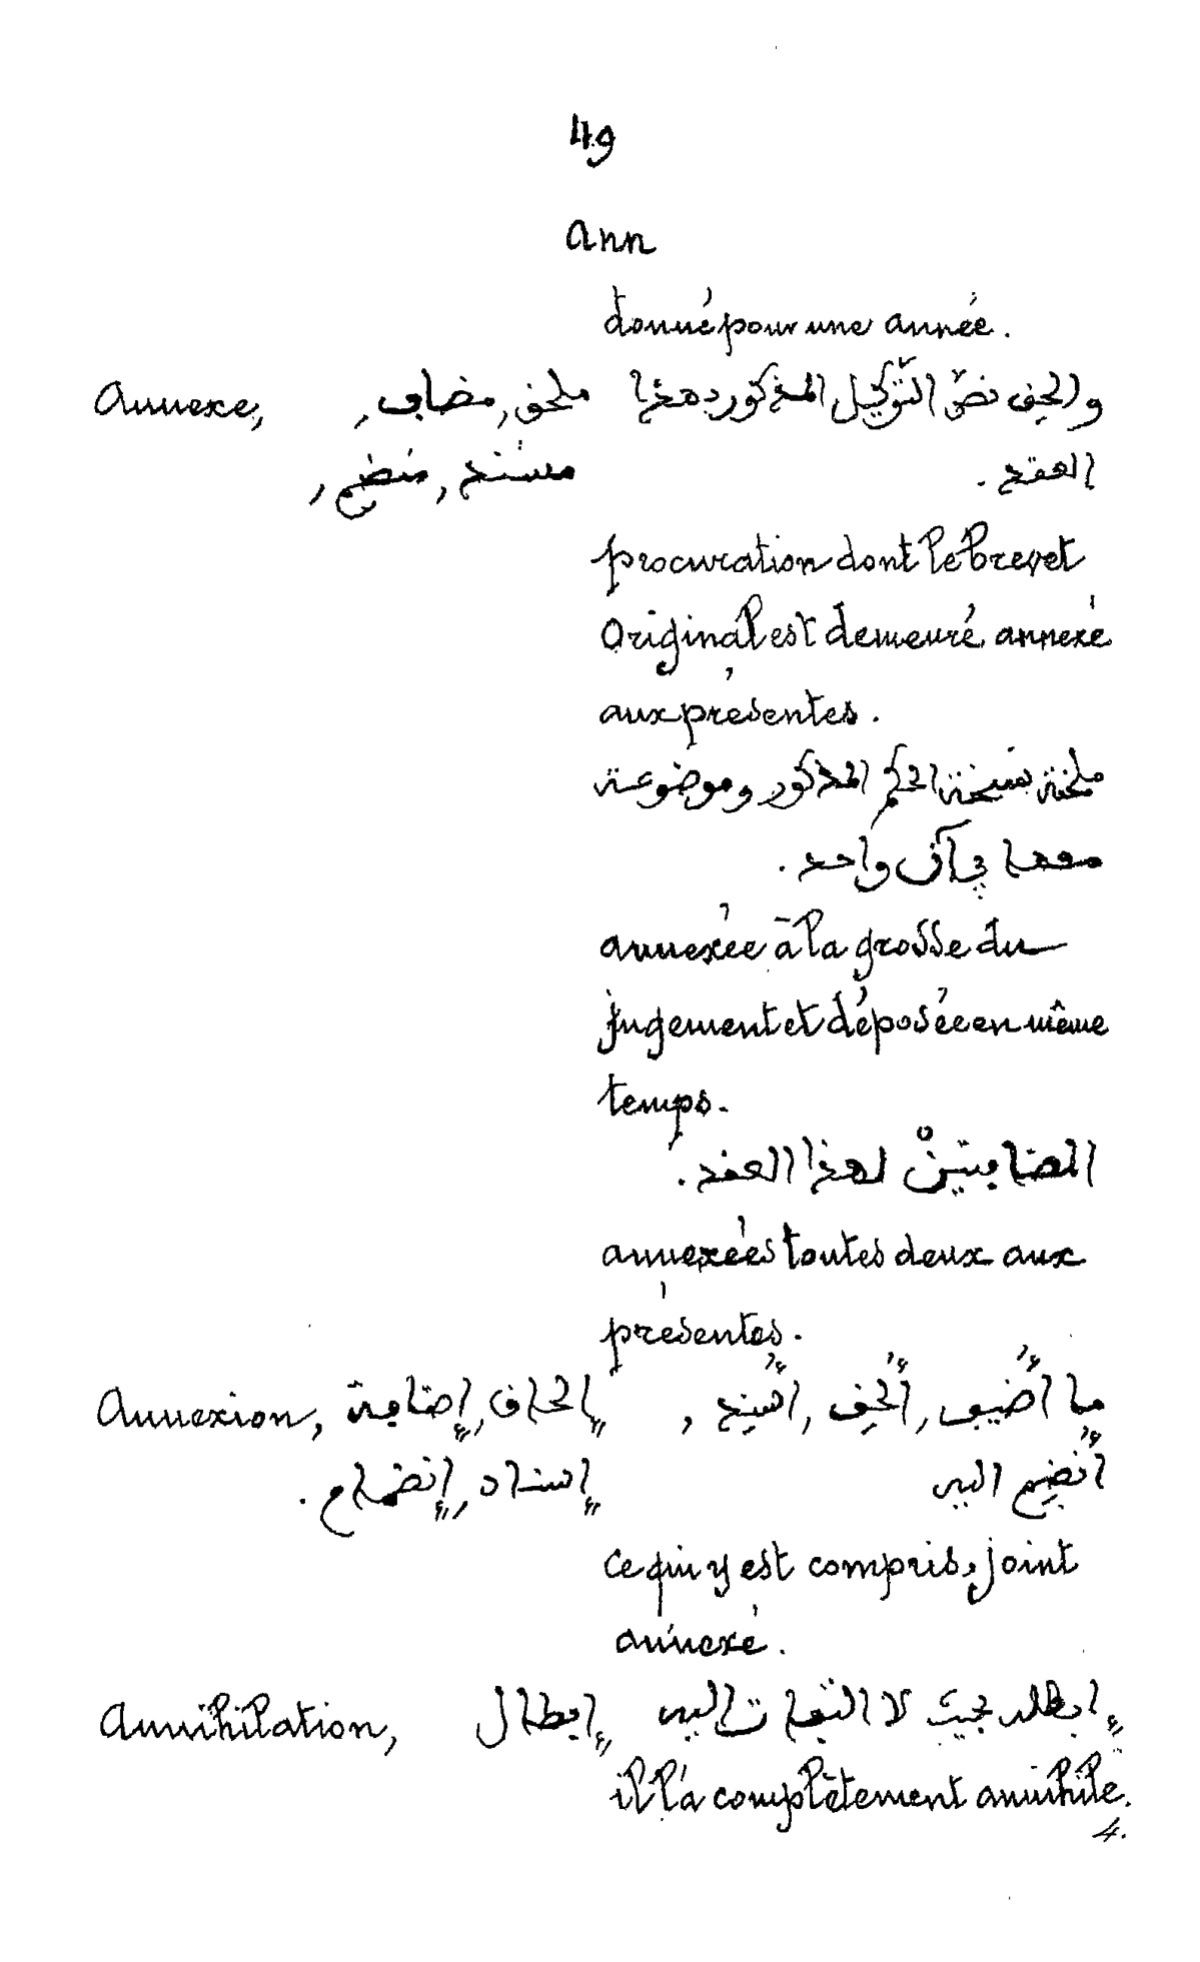 49
Ann
donné pour une année.
Annexe, ملحق, مضاف, والحق نصّ التّوكيل المذكور بهذا
مسند, منضم, العقد.
procuration dont le brevet
original est demeuré annexé
aux présentes.
ملحقة بنسخة الحكم المذكور وموضوعة
معها في آن واحد.
annexée à la grosse du
jugement et déposée en même
temps.
المضافتينْ لهذا العقد.
annexées toutes deux aux
présentes.
Annexion, إلحاق, إضافة ما أُضيف, أُلحِق, أُسنِد,
إسناد, إنضمام. أُنضِم اليه
ce qui y est compris, joint
annexé.
Annihilation, إبطال إبطله بحيث لا التفات اليه
il l'a complètement annihilé.
4.